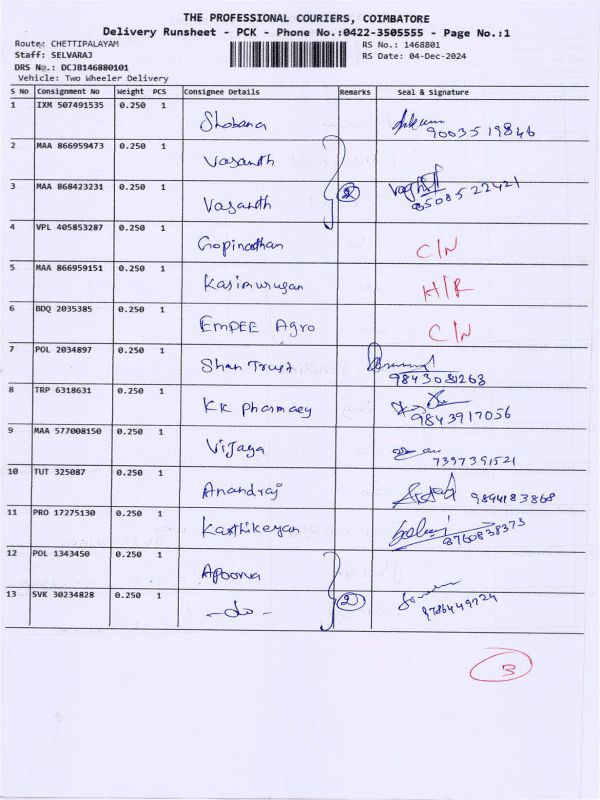 THE PROFESSIONAL COURIERS, COIMBATORE
Delivery Runsheet - PCK - Phone No.:0422-3505555 - Page No.:1
Route: CHETTIPALAYAM RS No.: 1468801
Staff: SELVARAJ RS Date: 04-Dec-2024
DRS No.: DCJB146880101
Vehicle: Two Wheeler Delivery
S No Consignment No Weight PCS Consignee Details Remarks Seal & Signature
1 IXM 507491535 0.250 1 Shobana 9003519846
2 MAA 866959473 0.250 1 Vasanth
3 MAA 868423231 0.250 1 Vasanth 2 8508522421
4 VPL 405853287 0.250 1 Gopinathan C/N
5 MAA 866959151 0.250 1 Kasimurugan H/R
6 BDQ 2035385 0.250 1 EMPEE Agro C/N
7 POL 2034897 0.250 1 Shan Trust 9843081263
8 TRP 6318631 0.250 1 KK Pharmacy 9843917056
9 MAA 577008150 0.250 1 Vijaya 7397391521
10 TUT 325087 0.250 1 Anandraj 9894183868
11 PRO 17275130 0.250 1 Karthikeyan 8760838373
12 POL 1343450 0.250 1 Apoorva
13 SVK 30234828 0.250 1 -do- 2 9786449724
3